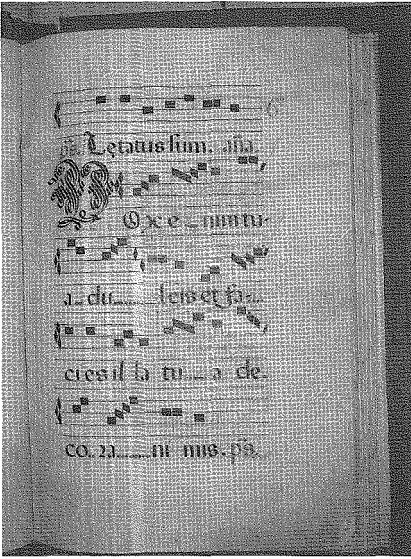 ps. Lętatus sum. aña.
VOx e_nim tu-
a_du___lcis et fa-
cies il la tu__a de-
co. ra___ni mis. ps.